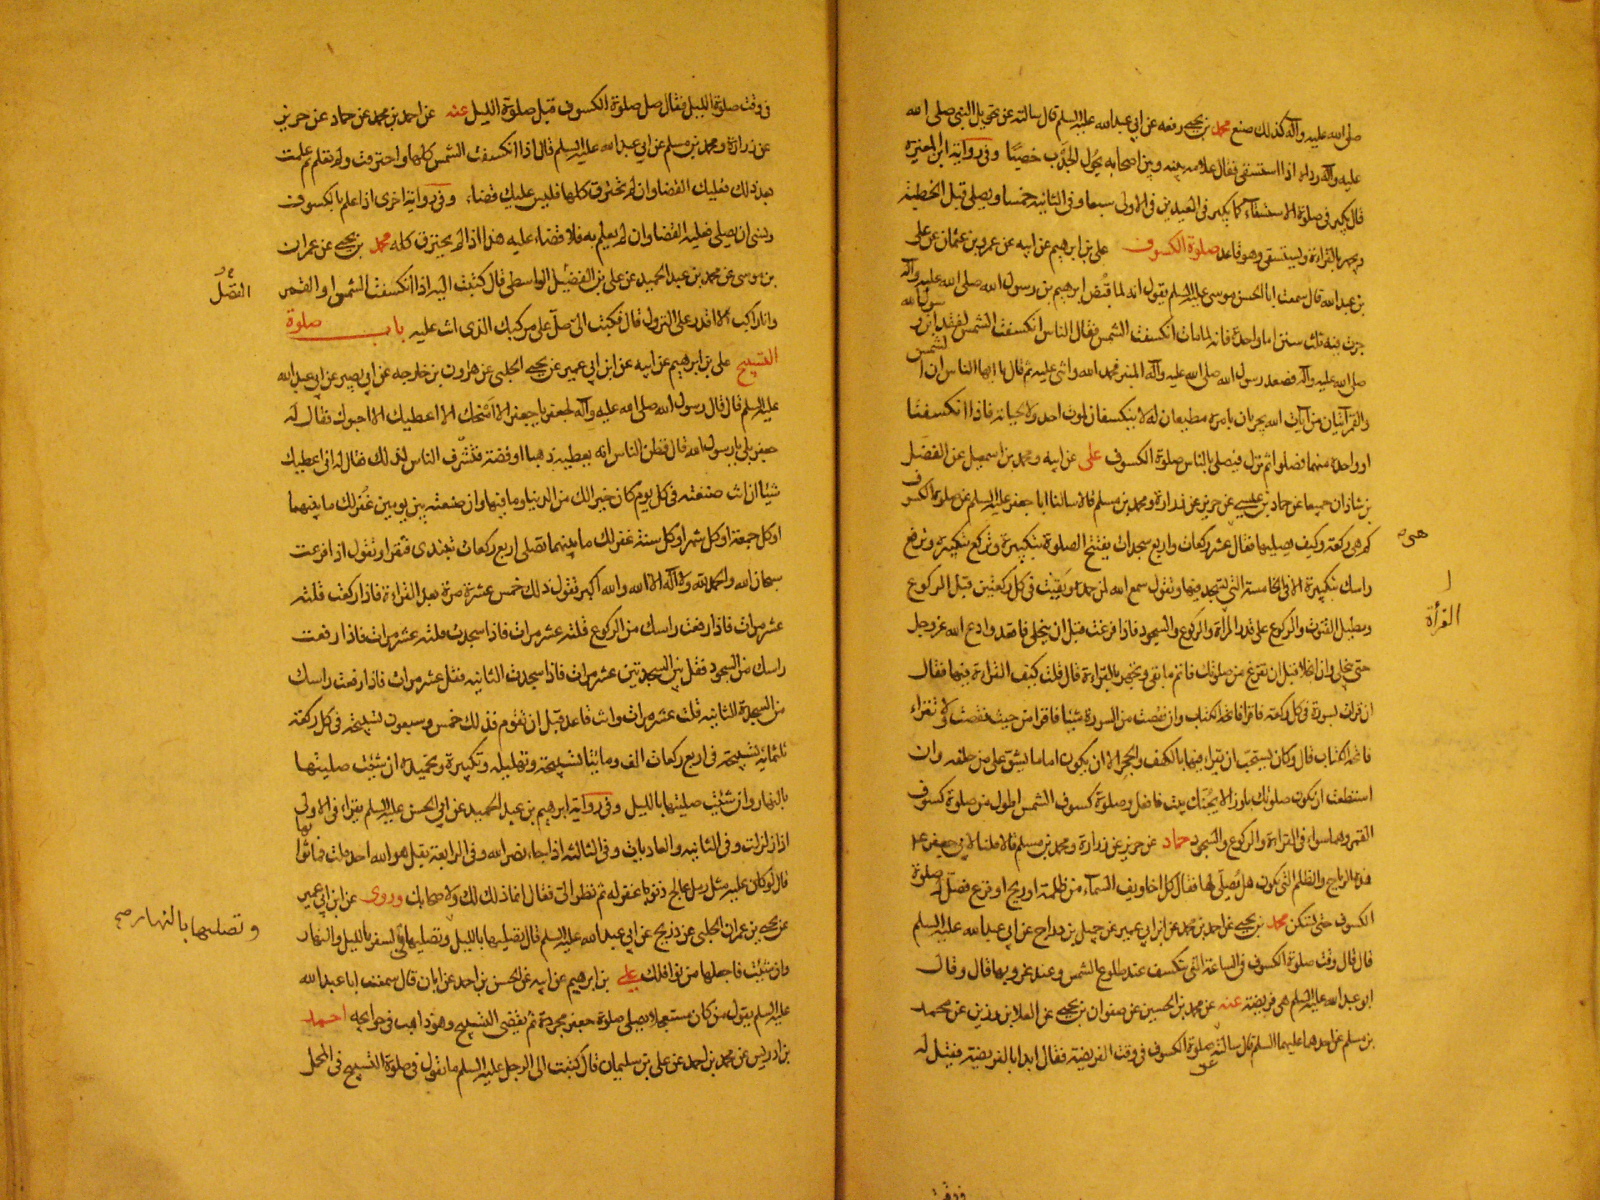 صلى الله عليه وآله كذلك صنع محمد بن يحيى رفعه عن ابي عبد الله عليه السلم قال سالته عن تحويل النبي صلى الله
عليه وآله رداءه اذا استسقى فقال علامة بينه وبين اصحابه يحول الجدب خصبا وفي رواية ابن المغيرة
قال يكبر في صلوة الاستسقاء كما يكبر في العيدين في الاولى سبعا وفي الثانية خمسا ويصلي قبل الخطبة
ويجهر بالقراءة ويستسقي وهو قاعد صلوة الكسوف علي بن ابرهيم عن ابيه عن عمرو بن عثمان عن علي
بن عبد الله قال سمعت ابا الحسن موسى عليه السلم يقول انه لما قبض ابرهيم بن رسول الله صلى الله عليه وآله
جرت فيه ثلث سنن اما واحدة فانه لما مات انكسفت الشمس فقال الناس انكسفت الشمس لفقد ابن رسول الله
صلى الله عليه وآله فصعد رسول الله صلى الله عليه وآله المنبر فحمد الله واثنى عليه ثم قال يا ايها الناس ان الشمس
والقمر آيتان من آيات الله يجريان بامره مطيعان له لا ينكسفان لموت احد ولا لحياته فاذا انكسفتا
او واحدة منهما فصلوا ثم نزل فصلى بالناس صلوة الكسوف علي عن ابيه ومحمد بن اسمعيل عن الفضل
بن شاذان جميعا عن حماد بن عيسى عن حريز عن زرارة ومحمد بن مسلم قالا سالنا ابا جعفر عليه السلم عن صلوة الكسوف
كم هي ركعة وكيف نصليها فقال عشر ركعات واربع سجدات يفتتح الصلوة بتكبيرة وتركع بتكبيرة وترفع
راسك بتكبيرة الا في الخامسة التي تسجد فيها وتقول سمع الله لمن حمده وتقنت في كل ركعتين قبل الركوع
وتطيل القنوت والركوع على قدر القرأة والركوع والسجود فاذا فرغت قبل ان ينجلي فاقعد وادع الله عز وجل
حتى ينجلي وان انجلا قبل ان تفرغ من صلوتك فاتم ما بقي وتجهر بالقراءة قال قلت كيف القراءة فيها فقال
ان قرات سورة في كل ركعة فاقرا فاتحة الكتاب وان نقصت من السورة شيئا فاقرا من حيث نقصت ولا تقراء
فاتحة الكتاب قال وكان يستحب ان يقراء فيها بالكهف والحجر الا ان يكون اماما يشق على من خلفه وان
استطعت ان تكون صلوتك بارزا لا يجنك بيت فافعل وصلوة كسوف الشمس اطول من صلوة كسوف
القمر وهما سواء في القراءة والركوع والسجود حماد عن حريز عن زرارة ومحمد بن مسلم قالا قلنا لابي جعفر عليه
هذه الرياح والظلم التي تكون هل يصلى لها فقال كل اخاويف السماء من ظلمة او ريح او فزع فصل له صلوة
الكسوف حتى تسكن محمد بن يحيى عن احمد بن محمد عن ابن ابي عمير عن جميل بن دراج عن ابي عبد الله عليه السلم
قال قال وقت صلوة الكسوف في الساعة التي تنكسف عند طلوع الشمس وعند غروبها قال وقال
ابو عبد الله عليه السلم هي فريضة عنه عن محمد بن الحسين عن صفوان بن يحيى عن العلا بن رزين عن محمد
بن مسلم عن احدهما عليهما السلم قال سالته عن صلوة الكسوف في وقت الفريضة فقال ابدا بالفريضة فقيل له
هي
القرأة
في وقت
في وقت صلوة الليل فقال صل صلوة الكسوف قبل صلوة الليل عنه عن احمد بن محمد عن حماد عن حريز
عن زرارة ومحمد بن مسلم عن ابي عبد الله عليه السلم قال اذا انكسفت الشمس كلها واحترقت ولم تعلم ثم علمت
بعد ذلك فعليك القضا وان لم تحترق كلها فليس عليك قضاء وفي رواية اخرى اذا علم بالكسوف
ونسي ان يصلي فعليه القضا وان لم يعلم به فلا قضاء عليه هذا اذا لم يحترق كله محمد بن يحيى عن عمران
بن موسى عن محمد بن عبد الحميد عن علي بن الفضيل الواسطي قال كتبت اليه اذا انكسفت الشمس او القمر
وانا راكب لا اقدر على النزول قال فكتب الي صل على مركبك الذي انت عليه باب صلوة
التسبيح علي بن ابرهيم عن ابيه عن ابن ابي عمير عن يحيى الحلبي عن هارون بن خارجه عن ابي بصير عن ابي عبد الله
عليه السلم قال قال رسول الله صلى الله عليه وآله لجعفر يا جعفر الا امنحك الا اعطيك الا احبوك فقال له
جعفر بلى يا رسول الله قال فظن الناس انه يعطيه ذهبا او فضة فتشرف الناس لذلك فقال له اني اعطيك
شيئا ان انت صنعته في كل يوم كان خيرا لك من الدنيا وما فيها وان صنعته بين يومين غفر لك ما بينهما
او كل جمعة او كل شهر او كل سنة غفر لك ما بينهما تصلي اربع ركعات تبتدى فتقرا وتقول اذا فرغت
سبحان الله والحمد لله ولا اله الا الله والله اكبر تقول ذلك خمس عشرة مرة بعد القراءة فاذا ركعت قلته
عشر مرات فاذا رفعت راسك من الركوع قلته عشر مرات فاذا سجدت قلته عشر مرات فاذا رفعت
راسك من السجود فقل بين السجدتين عشر مرات فاذا سجدت الثانية فقل عشر مرات فاذا رفعت راسك
من السجدة الثانية قلت عشر مرات وانت قاعد قبل ان تقوم فذلك خمس وسبعون تسبيحة في كل ركعة
ثلثمائة تسبيحة في اربع ركعات الف ومائتا تسبيحة وتهليلة وتكبيرة وتحميدة ان شئت صليتها
بالنهار وان شئت صليتها بالليل وفي رواية ابرهيم بن عبد الحميد عن ابي الحسن عليه السلم يقراء في الاولى
اذا زلزلت وفي الثانيه والعاديات وفي الثالثة اذا جاء نصر الله وفي الرابعة بقل هو الله احد قلت فما ثوابها
قال لو كان عليه مثل رمل عالج ذنوبا غفر له ثم نظر الي فقال انما ذلك لك ولاصحابك وروى عن ابن ابي عمير
عن يحيى بن عمران الحلبي عن ذريح عن ابي عبد الله عليه السلم قال تصليها بالليل وتصليها في السفر بالليل والنهار
وان شئت فاجعلها من نوافلك علي بن ابرهيم عن ابيه عن الحسن بن احمد عن ابان قال سمعت ابا عبد الله
عليه السلم يقول من كان مستعجلا يصلي صلوة جعفر مجردة ثم يقضي التسبيح وهو ذاهب في حوايجه احمد
بن ادريس عن محمد بن احمد عن علي بن سليمان قال كتبت الى الرجل عليه السلم ما تقول في صلوة التسبيح في المحمل
الفضل
وتصليها بالنهار صح